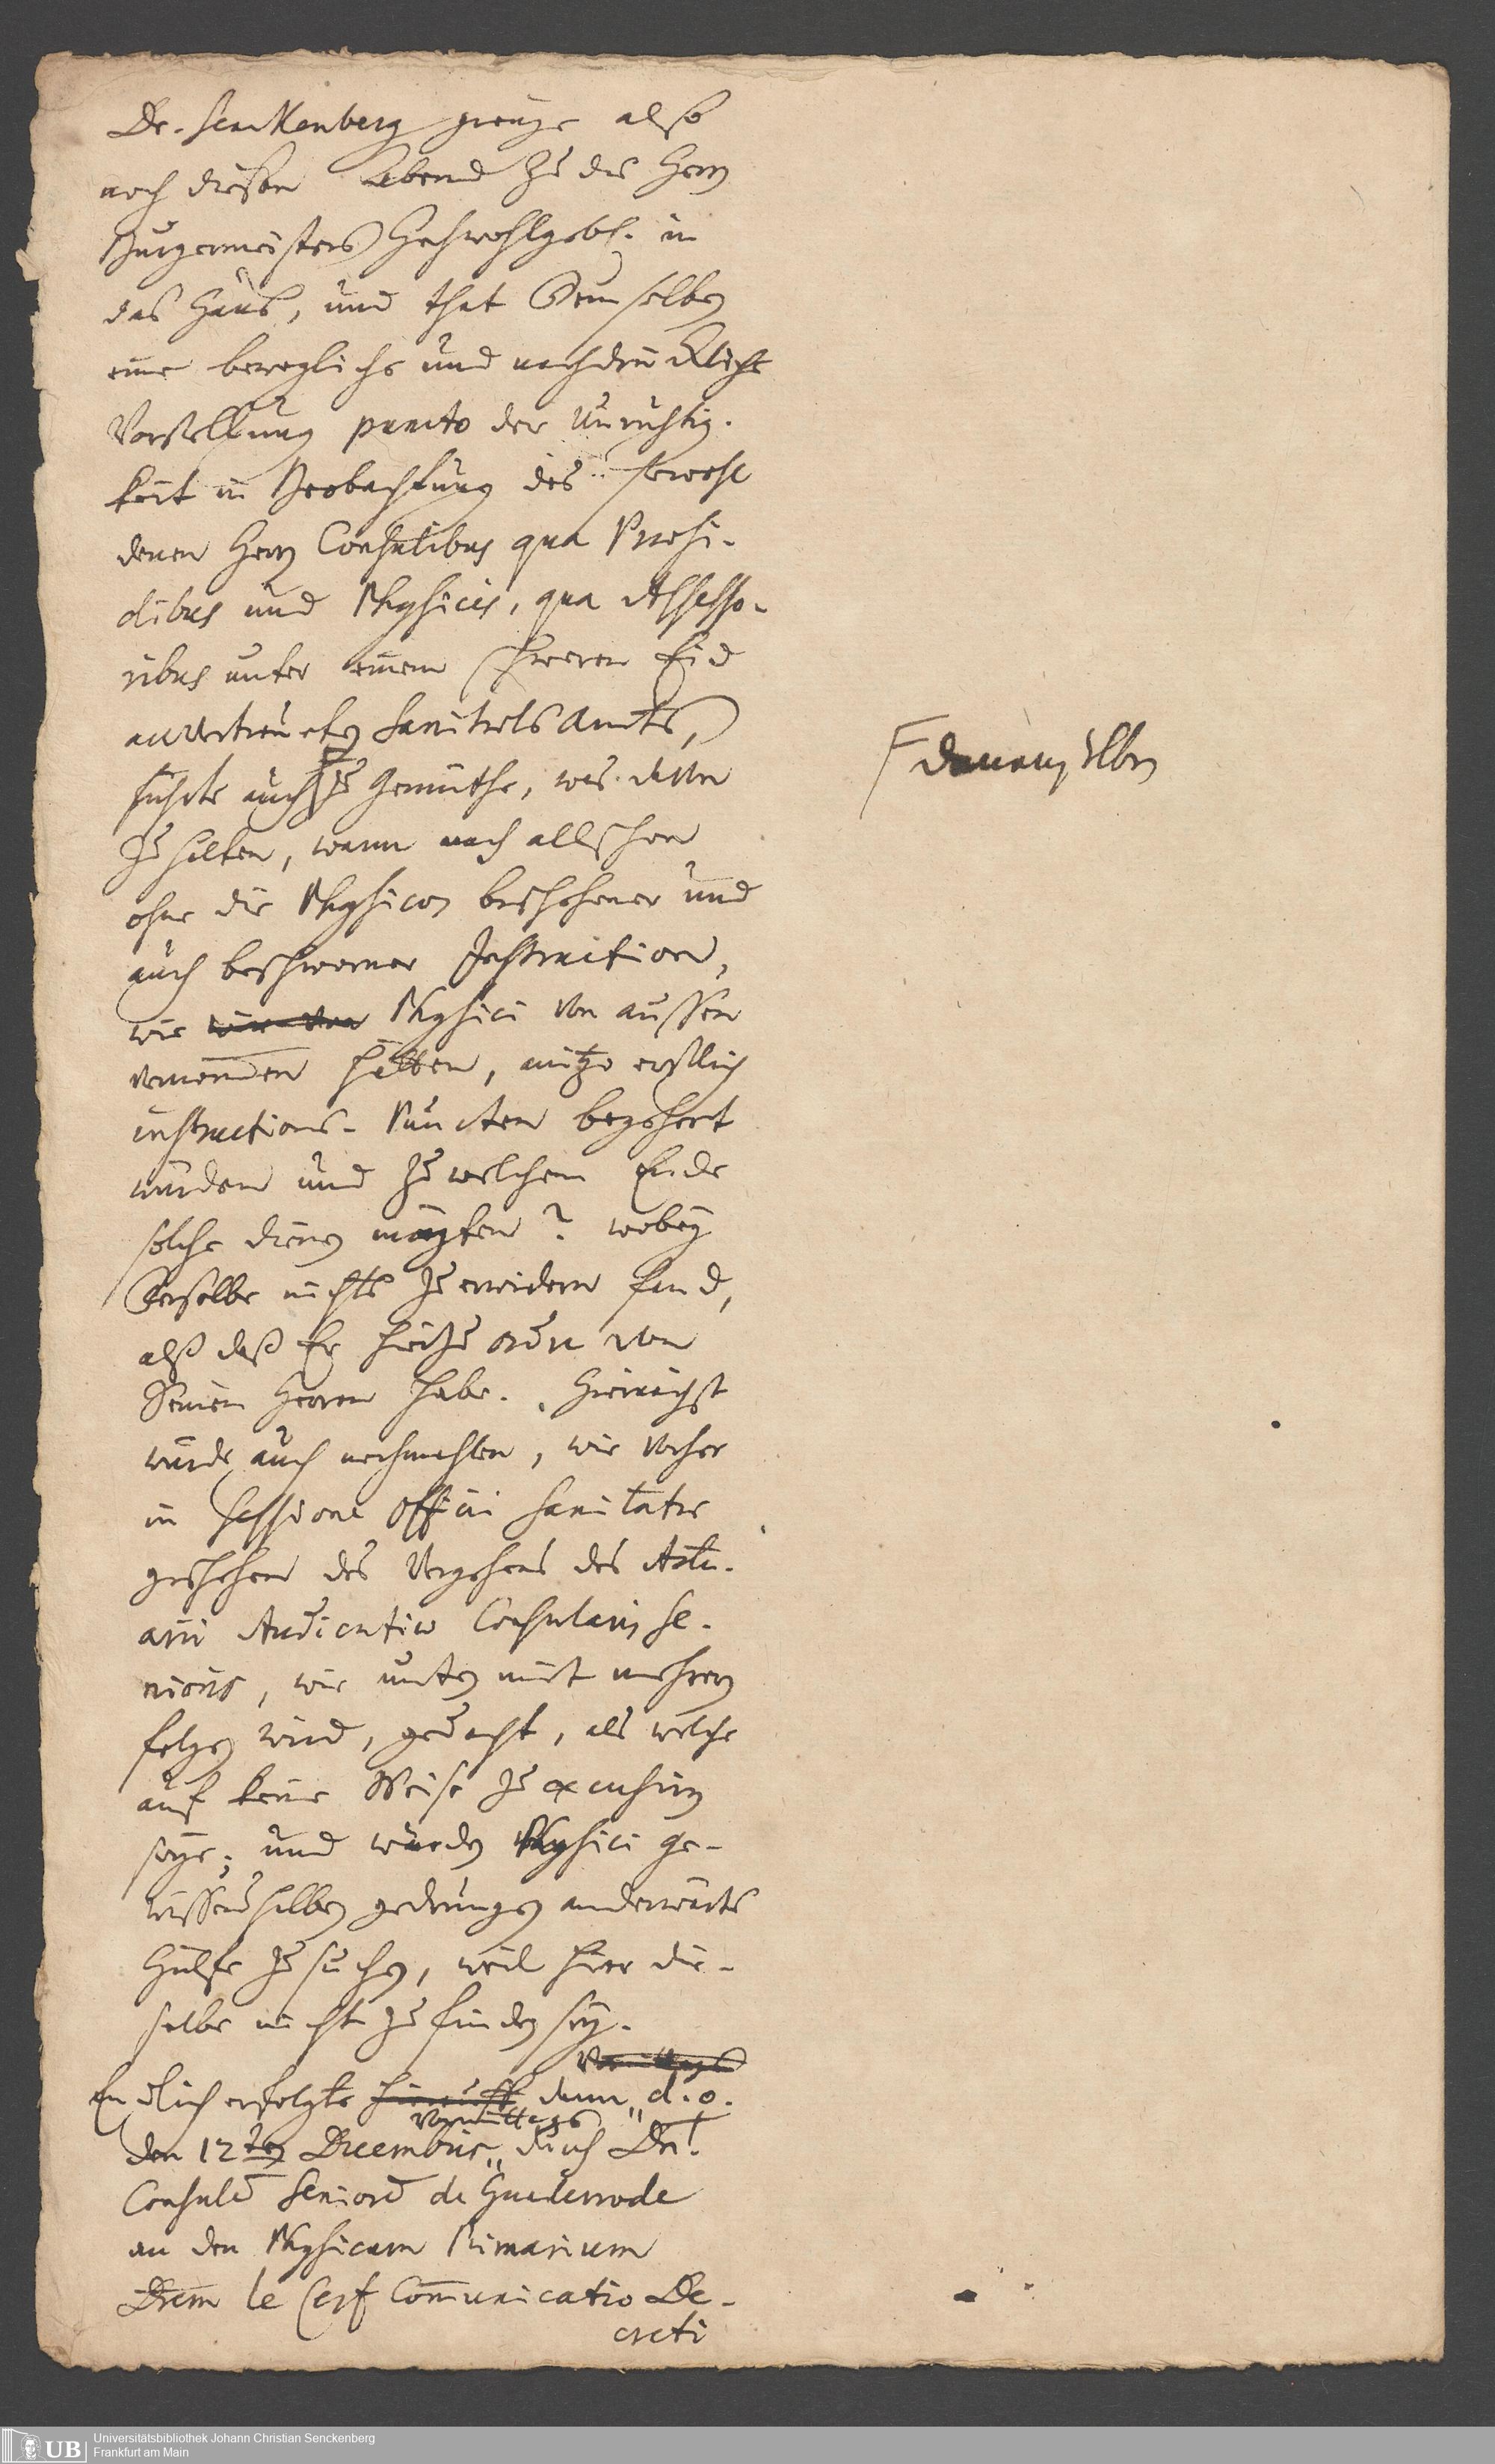 Dr. Senckenberg gienge also
noch diesen Abend zu des Herrn
Burgermeisters Hochwohlgeb. in
das Hauß, und that Demselben
eine bewegliche und nachdrückliche
Vorstellung puncto der Unrichtig-
keit in Beobachtung des sowohl
denen Herrn Consulibus qua Praesi-
dibus und Physicis, qua Assesso-
ribus unter einem schweren Eid
anvertrauten Sanitäts Amts,
führte auch zu Gemüthe, was davon
zu halten, wann nach allschon
ohne die Physicos beschehener und
auch beschworner Instruction,
wie Physici von aussen
vernommen hätten, anitzo erstlich
instructions-Puncten begehrt
würden und zu welchem Ende
solche dienen mögten? wobey
Derselbe nichts zu erwidern fand,
alß daß Er hiezu ordre von
Seinen Herren habe. Hiernächst
wurde auch nochmahlen, wie vorher
in Sessione Officii Sanitatis
geschehen des Vergehens des Actu-
arii Audientiae Consularis Se-
nioris, wie unten mit mehrern
folgen wird, gedacht, als welche
auf keine Weise zu excusiren
seye; und würden Physici ge-
wissenshalben gedrungen anderwärts
Hülfe zu suchen, weil hier die-
selbe nicht zu finden sey.
Vormittags
Endlich erfolgte hierauff dann d. o.
Vormittags
den 12ten Decembris durch Dn.
Consulem Seniorem de Günderrode
an den Physicum Primarium
Drem le Cerf Communicatio De-
creti
Denenselben
UB
Universitätsbibliothek Johann Christian Senckenberg
Frankfurt am Main